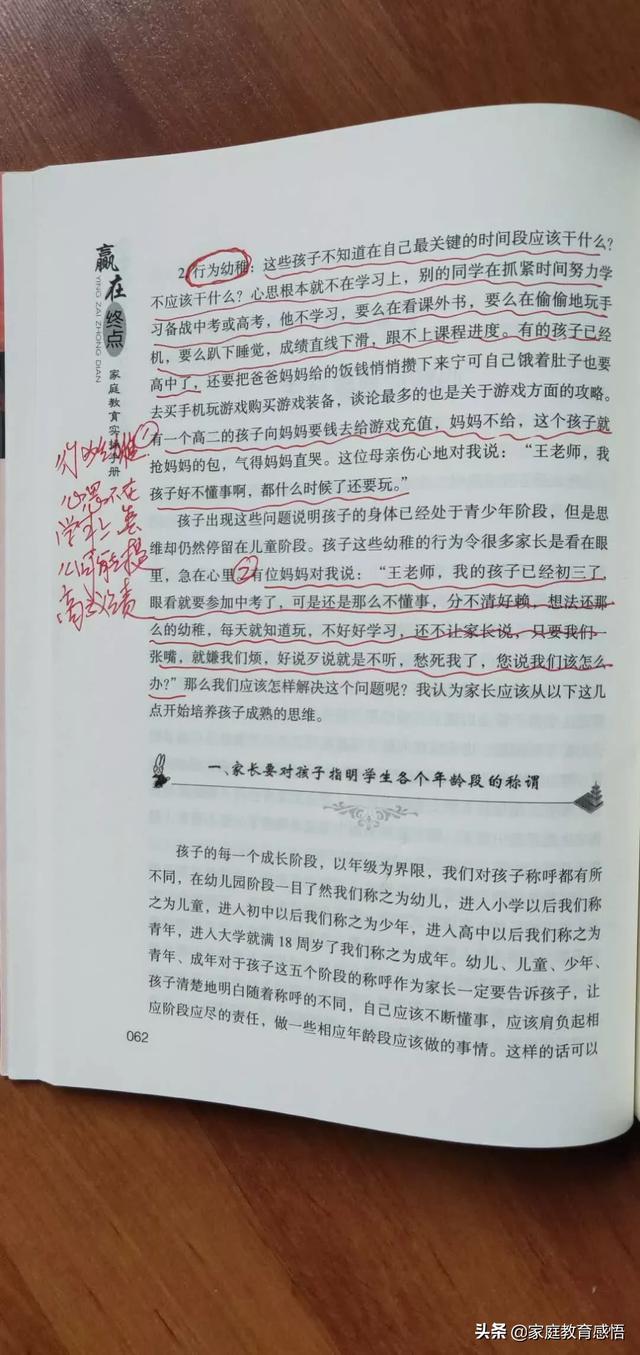 赢在终点
YING ZAI ZHONG DIAN
家庭教育实 册
2.行为幼稚：这些孩子不知道在自己最关键的时间段应该干什么？
不应该干什么？心思根本就不在学习上，别的同学在抓紧时间努力学
习备战中考或高考，他不学习，要么在看课外书，要么在偷偷地玩手
机，要么趴下睡觉，成绩直线下滑，跟不上课程进度。有的孩子已经
高中了，还要把爸爸妈妈给的饭钱悄悄攒下来宁可自己饿着肚子也要
去买手机玩游戏购买游戏装备，谈论最多的也是关于游戏方面的攻略。
有一个高二的孩子向妈妈要钱去给游戏充值，妈妈不给，这个孩子就
抢妈妈的包，气得妈妈直哭。这位母亲伤心地对我说：“王老师，我
孩子好不懂事啊，都什么时候了还要玩。”
孩子出现这些问题说明孩子的身体已经处于青少年阶段，但是思
维却仍然停留在儿童阶段。孩子这些幼稚的行为令很多家长是看在眼
里，急在心里②有位妈妈对我说：“王老师，我的孩子已经初三了，
眼看就要参加中考了，可是还是那么不懂事，分不清好赖，想法还那
么的幼稚，每天就知道玩，不好好学习，还不让家长说，只要我们一
张嘴，就嫌我们烦，好说歹说就是不听，愁死我了，您说我们该怎么
办？”那么我们应该怎样解决这个问题呢？我认为家长应该从以下这几
点开始培养孩子成熟的思维。
行为幼稚①
心思不在
学习上，怎
么可能提
高成绩
一、家长要对孩子指明学生各个年龄段的称谓
孩子的每一个成长阶段，以年级为界限，我们对孩子称呼都有所
不同，在幼儿园阶段一目了然我们称之为幼儿，进入小学以后我们称
之为儿童，进入初中以后我们称之为少年，进入高中以后我们称之为
青年，进入大学就满 18 周岁了我们称之为成年。幼儿、儿童、少年、
青年、成年对于孩子这五个阶段的称呼作为家长一定要告诉孩子，让
孩子清楚地明白随着称呼的不同，自己应该不断懂事，应该肩负起相
应阶段应尽的责任，做一些相应年龄段应该做的事情。这样的话可以
062
头条 @家庭教育感悟